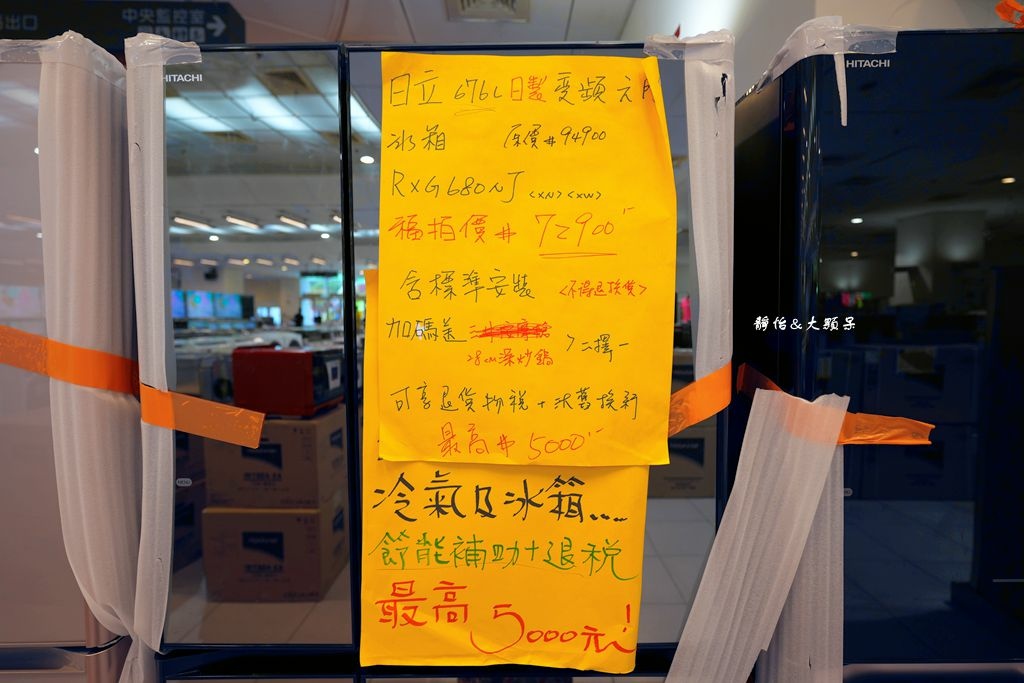 出口
中央監控室
HITACHI
HITACHI
日立 676L 日製 變頻 六門
冰箱 原價#94900
RXG680NJ <XN><XW>
福拍價# 72900
含標準安裝 <不得退換貨>
加碼送
28cm深炒鍋 >二擇一
可享退貨物稅+汰舊換新
最高#5000
冷氣及冰箱....
節能補助+退稅
最高5000元!
靜怡&大顆呆